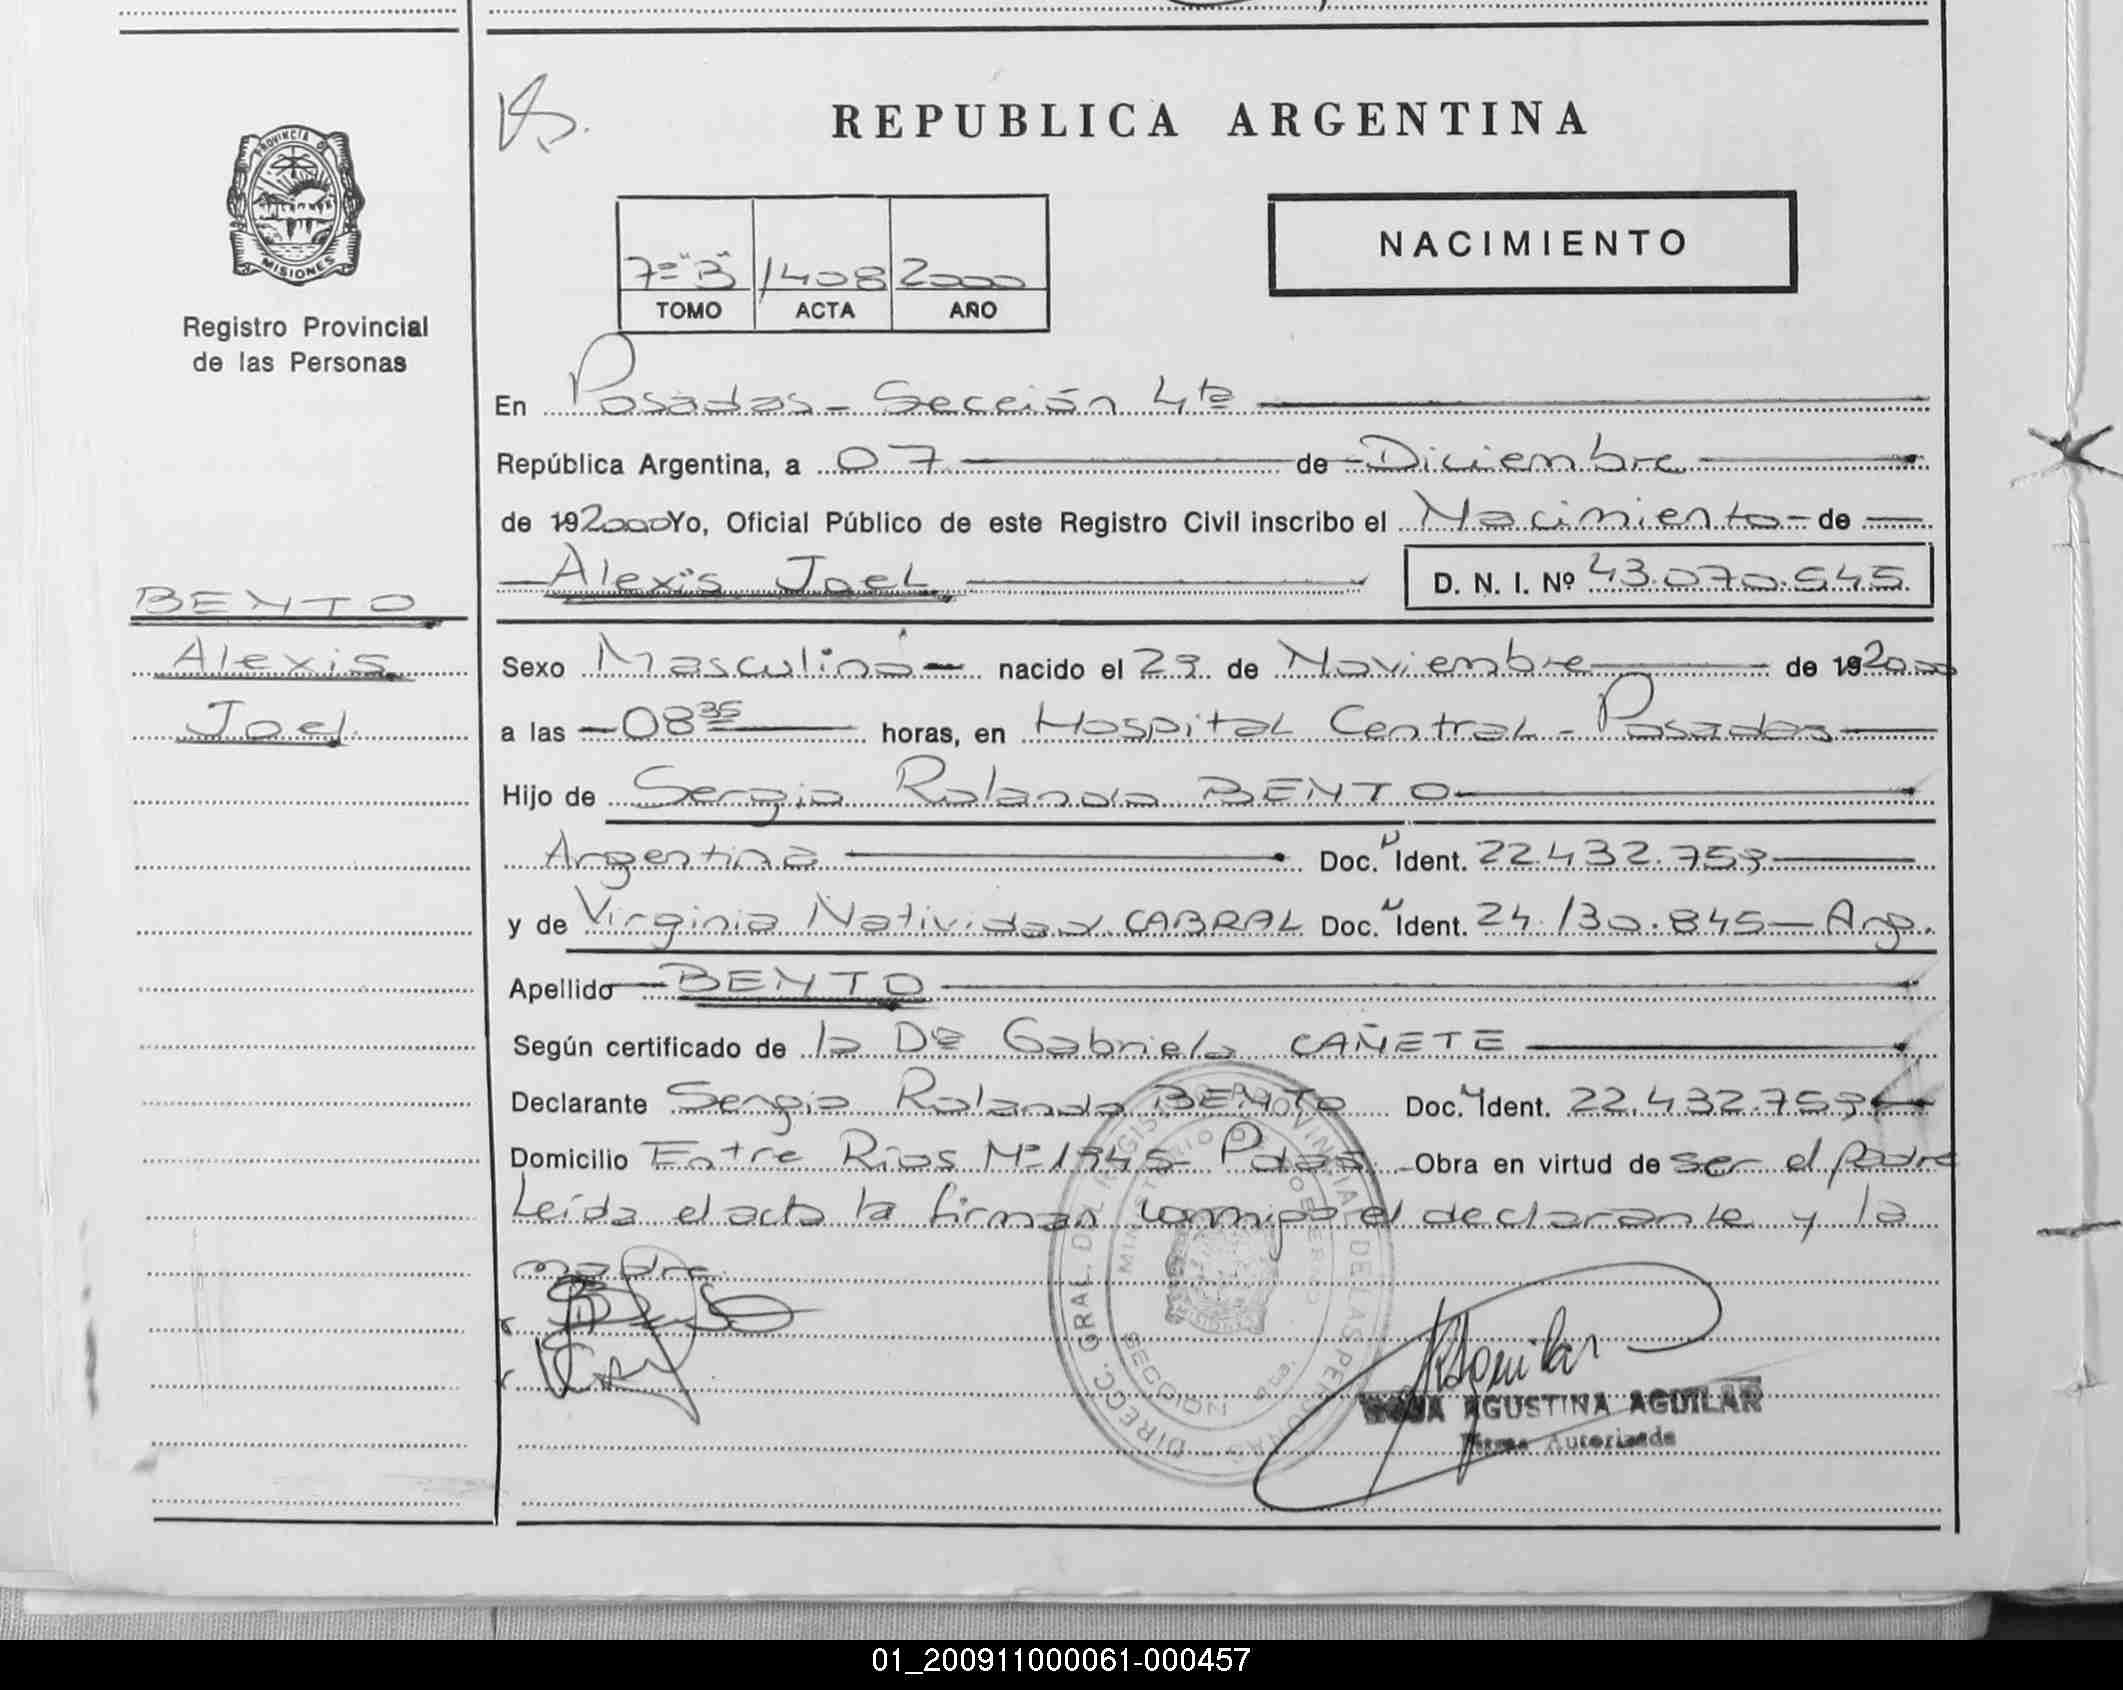 REPUBLICA ARGENTINA
PROVINCIA DE
MISIONES
Registro Provincial
de las Personas
7º "B" 1408 2000
TOMO ACTA AÑO
NACIMIENTO
En Posadas - Sección 4ta
República Argentina, a 07 de Diciembre
de 192000 Yo, Oficial Público de este Registro Civil inscribo el Nacimiento de
Alexis Joel D. N. I. Nº 43.070.545
BENTO
Alexis
Joel
Sexo Masculino nacido el 29 de Noviembre de 192000
a las 08 35 horas, en Hospital Central - Posadas
Hijo de Sergio Rolando BENTO
Argentina Doc. N Ident. 22.432.753
y de Virginia Natividad CABRAL Doc. N Ident. 24.130.845 - Arg.
Apellido BENTO
Según certificado de la Dra Gabriela CAÑETE
Declarante Sergio Rolando BENTO Doc. N Ident. 22.432.753
Domicilio Entre Ríos Nº 1945 - Pdas. Obra en virtud de ser el padre
Leída el acta la firman conmigo el declarante y la
madre.
DIRECC. GRAL. DEL REGISTRO PROVINCIAL DE LAS PERSONAS
MINISTERIO DE GOBIERNO
SECCION
AGUSTINA AGUILAR
Firma Autorizada
01_200911000061-000457